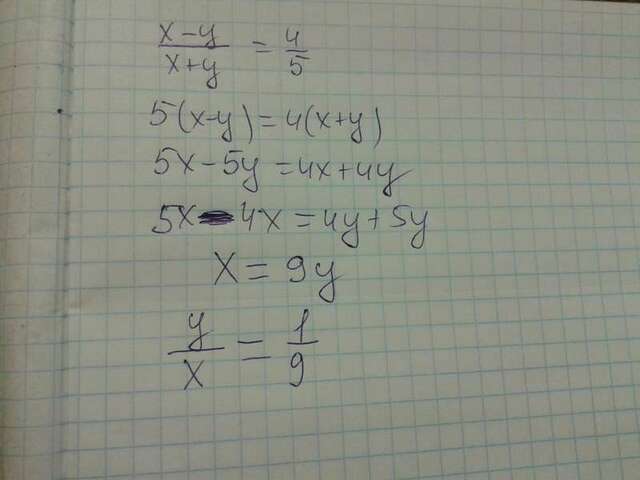 (x-y)/(x+y) = 4/5
5(x-y)=4(x+y)
5x-5y=4x+4y
5x-4x=4y+5y
x=9y
y/x = 1/9